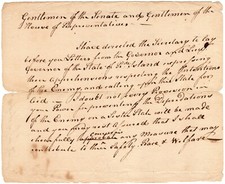 Gentlemen of the Senate and Gentlemen of the
House of Representatives
I have directed the Secretary to lay
before you Letters from the Governor and Lieut
Governor of the State of R Island expressing
their Apprehensions respecting the
of the Enemy, and calling upon this State for
Aid I doubt not every Provision in
your Power for preventing the Depredations
of the Enemy on a Sister State will be made
and you may rest assured that I shall
chearfully any Measure that may
contribute to their Safety Peace & Welfare